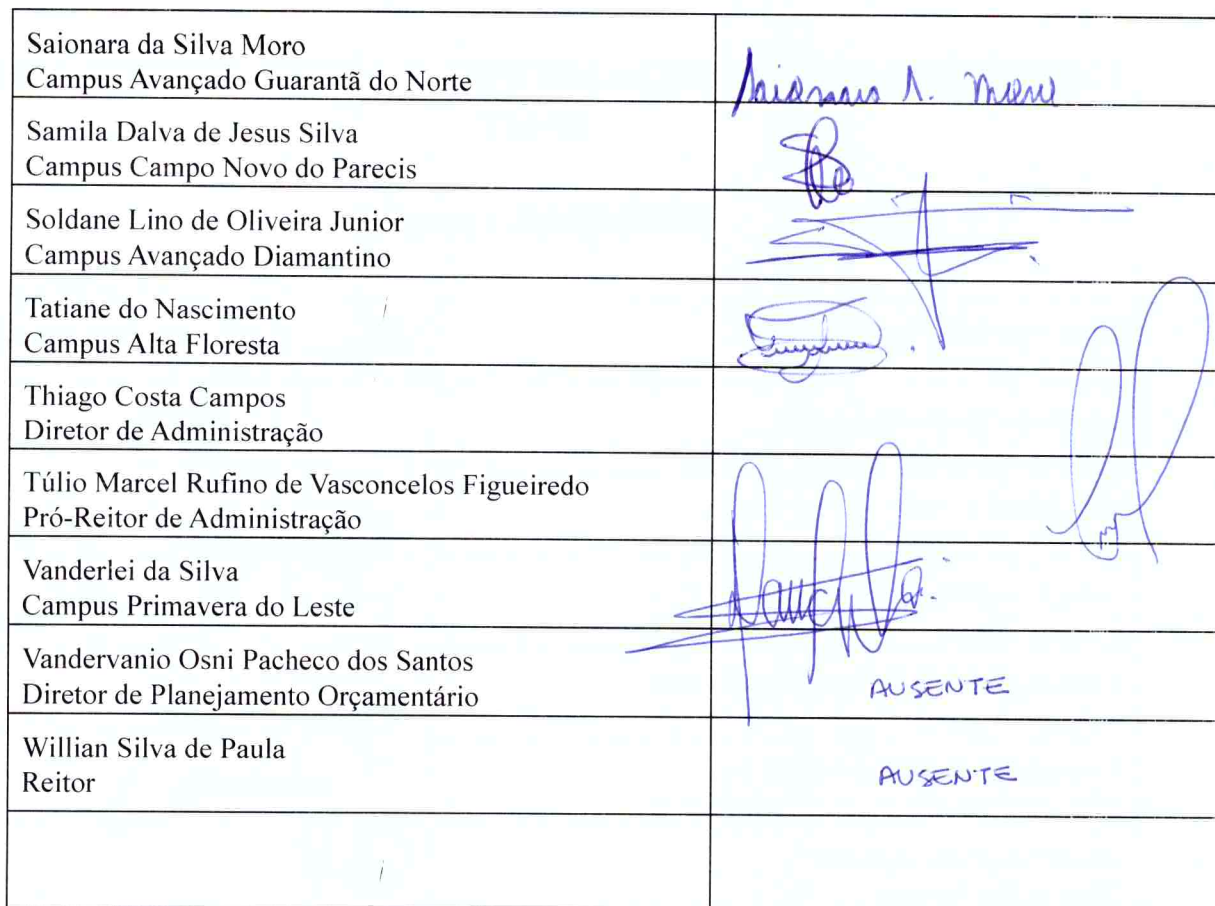 Saionara da Silva Moro
Campus Avançado Guarantã do Norte
Saionara S. Moro
Samila Dalva de Jesus Silva
Campus Campo Novo do Parecis
Soldane Lino de Oliveira Junior
Campus Avançado Diamantino
Tatiane do Nascimento
Campus Alta Floresta
Thiago Costa Campos
Diretor de Administração
Túlio Marcel Rufino de Vasconcelos Figueiredo
Pró-Reitor de Administração
Vanderlei da Silva
Campus Primavera do Leste
Vandervanio Osni Pacheco dos Santos
Diretor de Planejamento Orçamentário
AUSENTE
Willian Silva de Paula
Reitor
AUSENTE